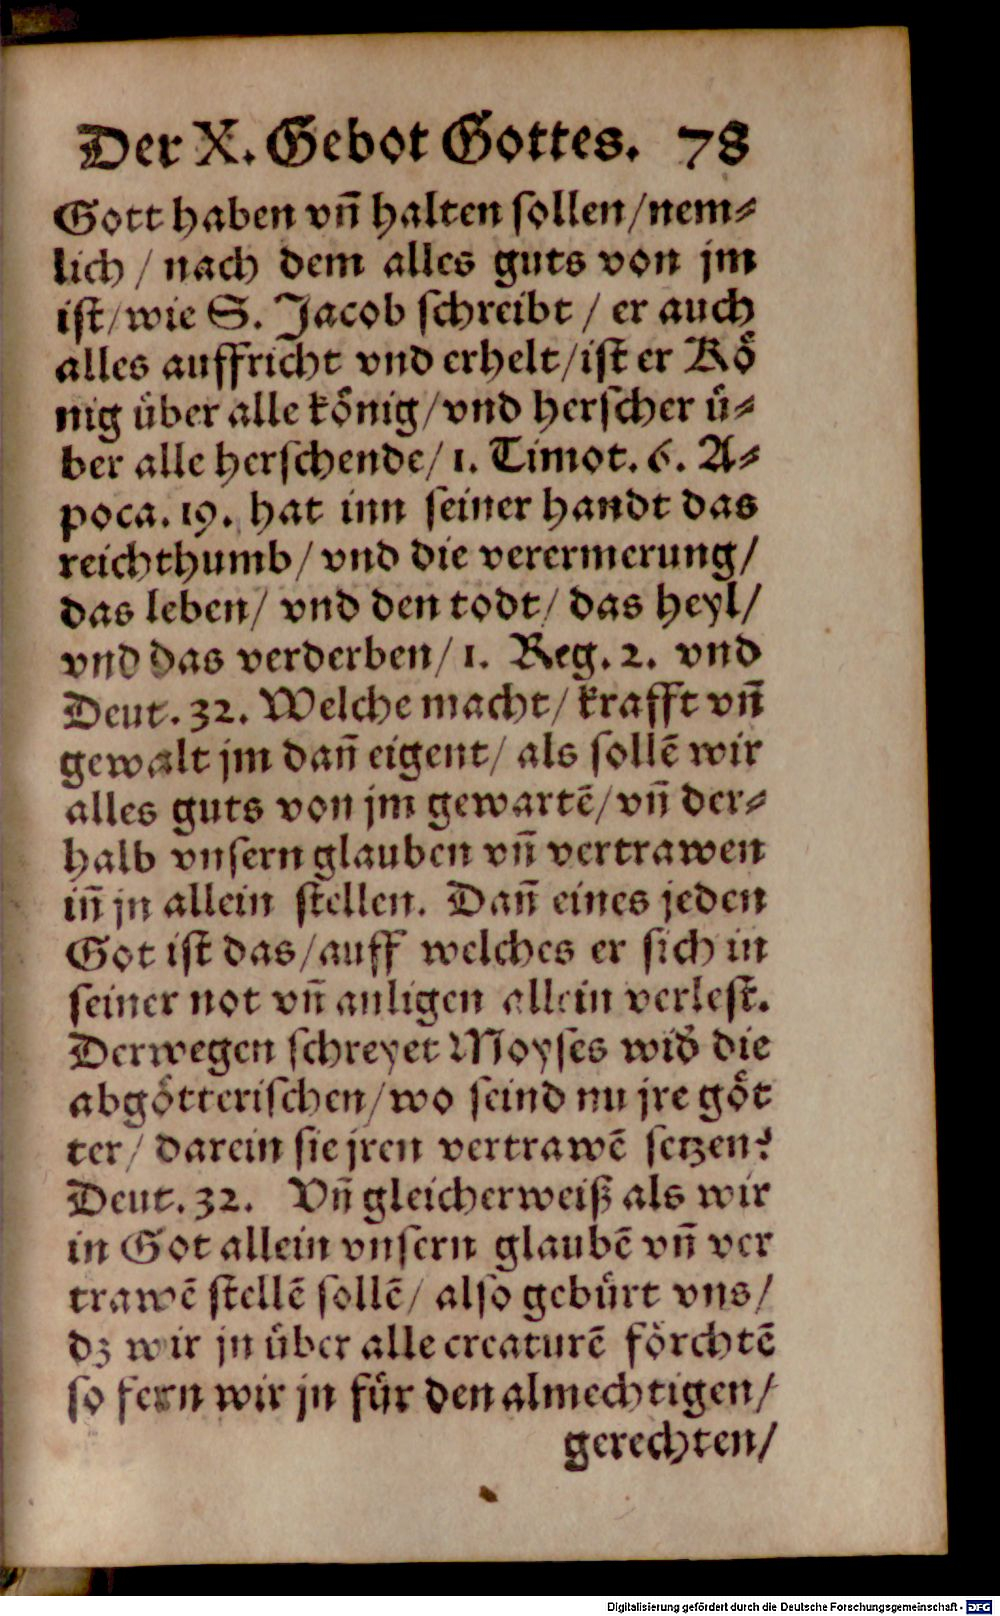 Der X. Gebot Gottes. 78
Gott haben vñ halten ſollen/nem⸗
lich / nach dem alles guts von jm
iſt/wie S. Jacob ſchreibt / er auch
alles auffricht vnd erhelt/iſt er Koͤ
nig uͤber alle koͤnig/vnd herſcher uͤ⸗
ber alle herſchende/ 1. Timot. 6. A⸗
poca. 19. hat inn ſeiner handt das
reichthumb/ vnd die verermerung/
das leben/ vnd den todt/ das heyl/
vnd das verderben/ 1. Reg. 2. vnd
Deut. 32. Welche macht/ krafft vñ
gewalt jm dañ eigent/ als ſollẽ wir
alles guts von jm gewartẽ/vñ der⸗
halb vnſern glauben vñ vertrawen
iñ jn allein ſtellen. Dañ eines jeden
Got iſt das/auff welches er ſich in
ſeiner not vñ anligen allein verleſt.
Derwegen ſchreyet Moyſes wid̓ die
abgoͤtteriſchen/wo ſeind nu jre goͤt
ter/ darein ſie jren vertrawẽ ſetzen?
Deut. 32. Vñ gleicherweiß als wir
in Got allein vnſern glaubẽ vñ ver
trawẽ ſtellẽ ſollẽ/ alſo gebuͤrt vns/
dz wir jn uͤber alle creaturẽ foͤrchtẽ
ſo fern wir jn fuͤr den almechtigen/
gerechten/
Digitalisierung gefördert durch die Deutsche Forschungsgemeinschaft - DFG